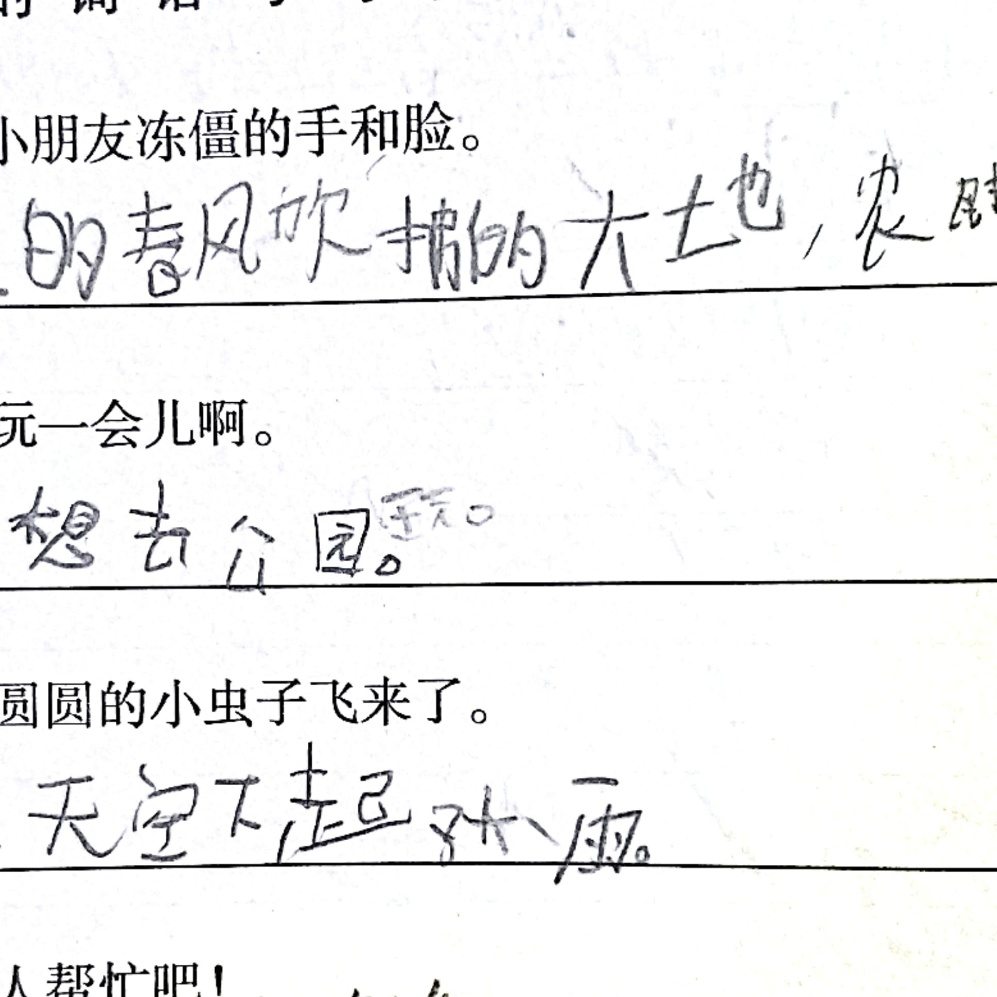 的词语
小朋友冻僵的手和脸。
的春风吹拂的大土地，农
玩一会儿啊。
想去公园玩。
圆圆的小虫子飞来了。
天空下起 雨。
人帮忙吧！